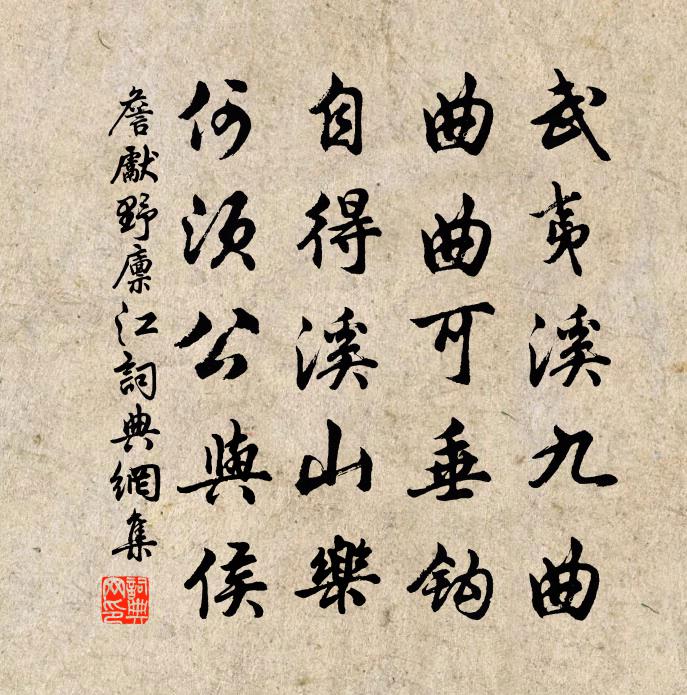 武夷溪九曲
曲曲可垂鈎
自得溪山樂
何須公與侯
詹獻野廪江詞典網集
詞典網印